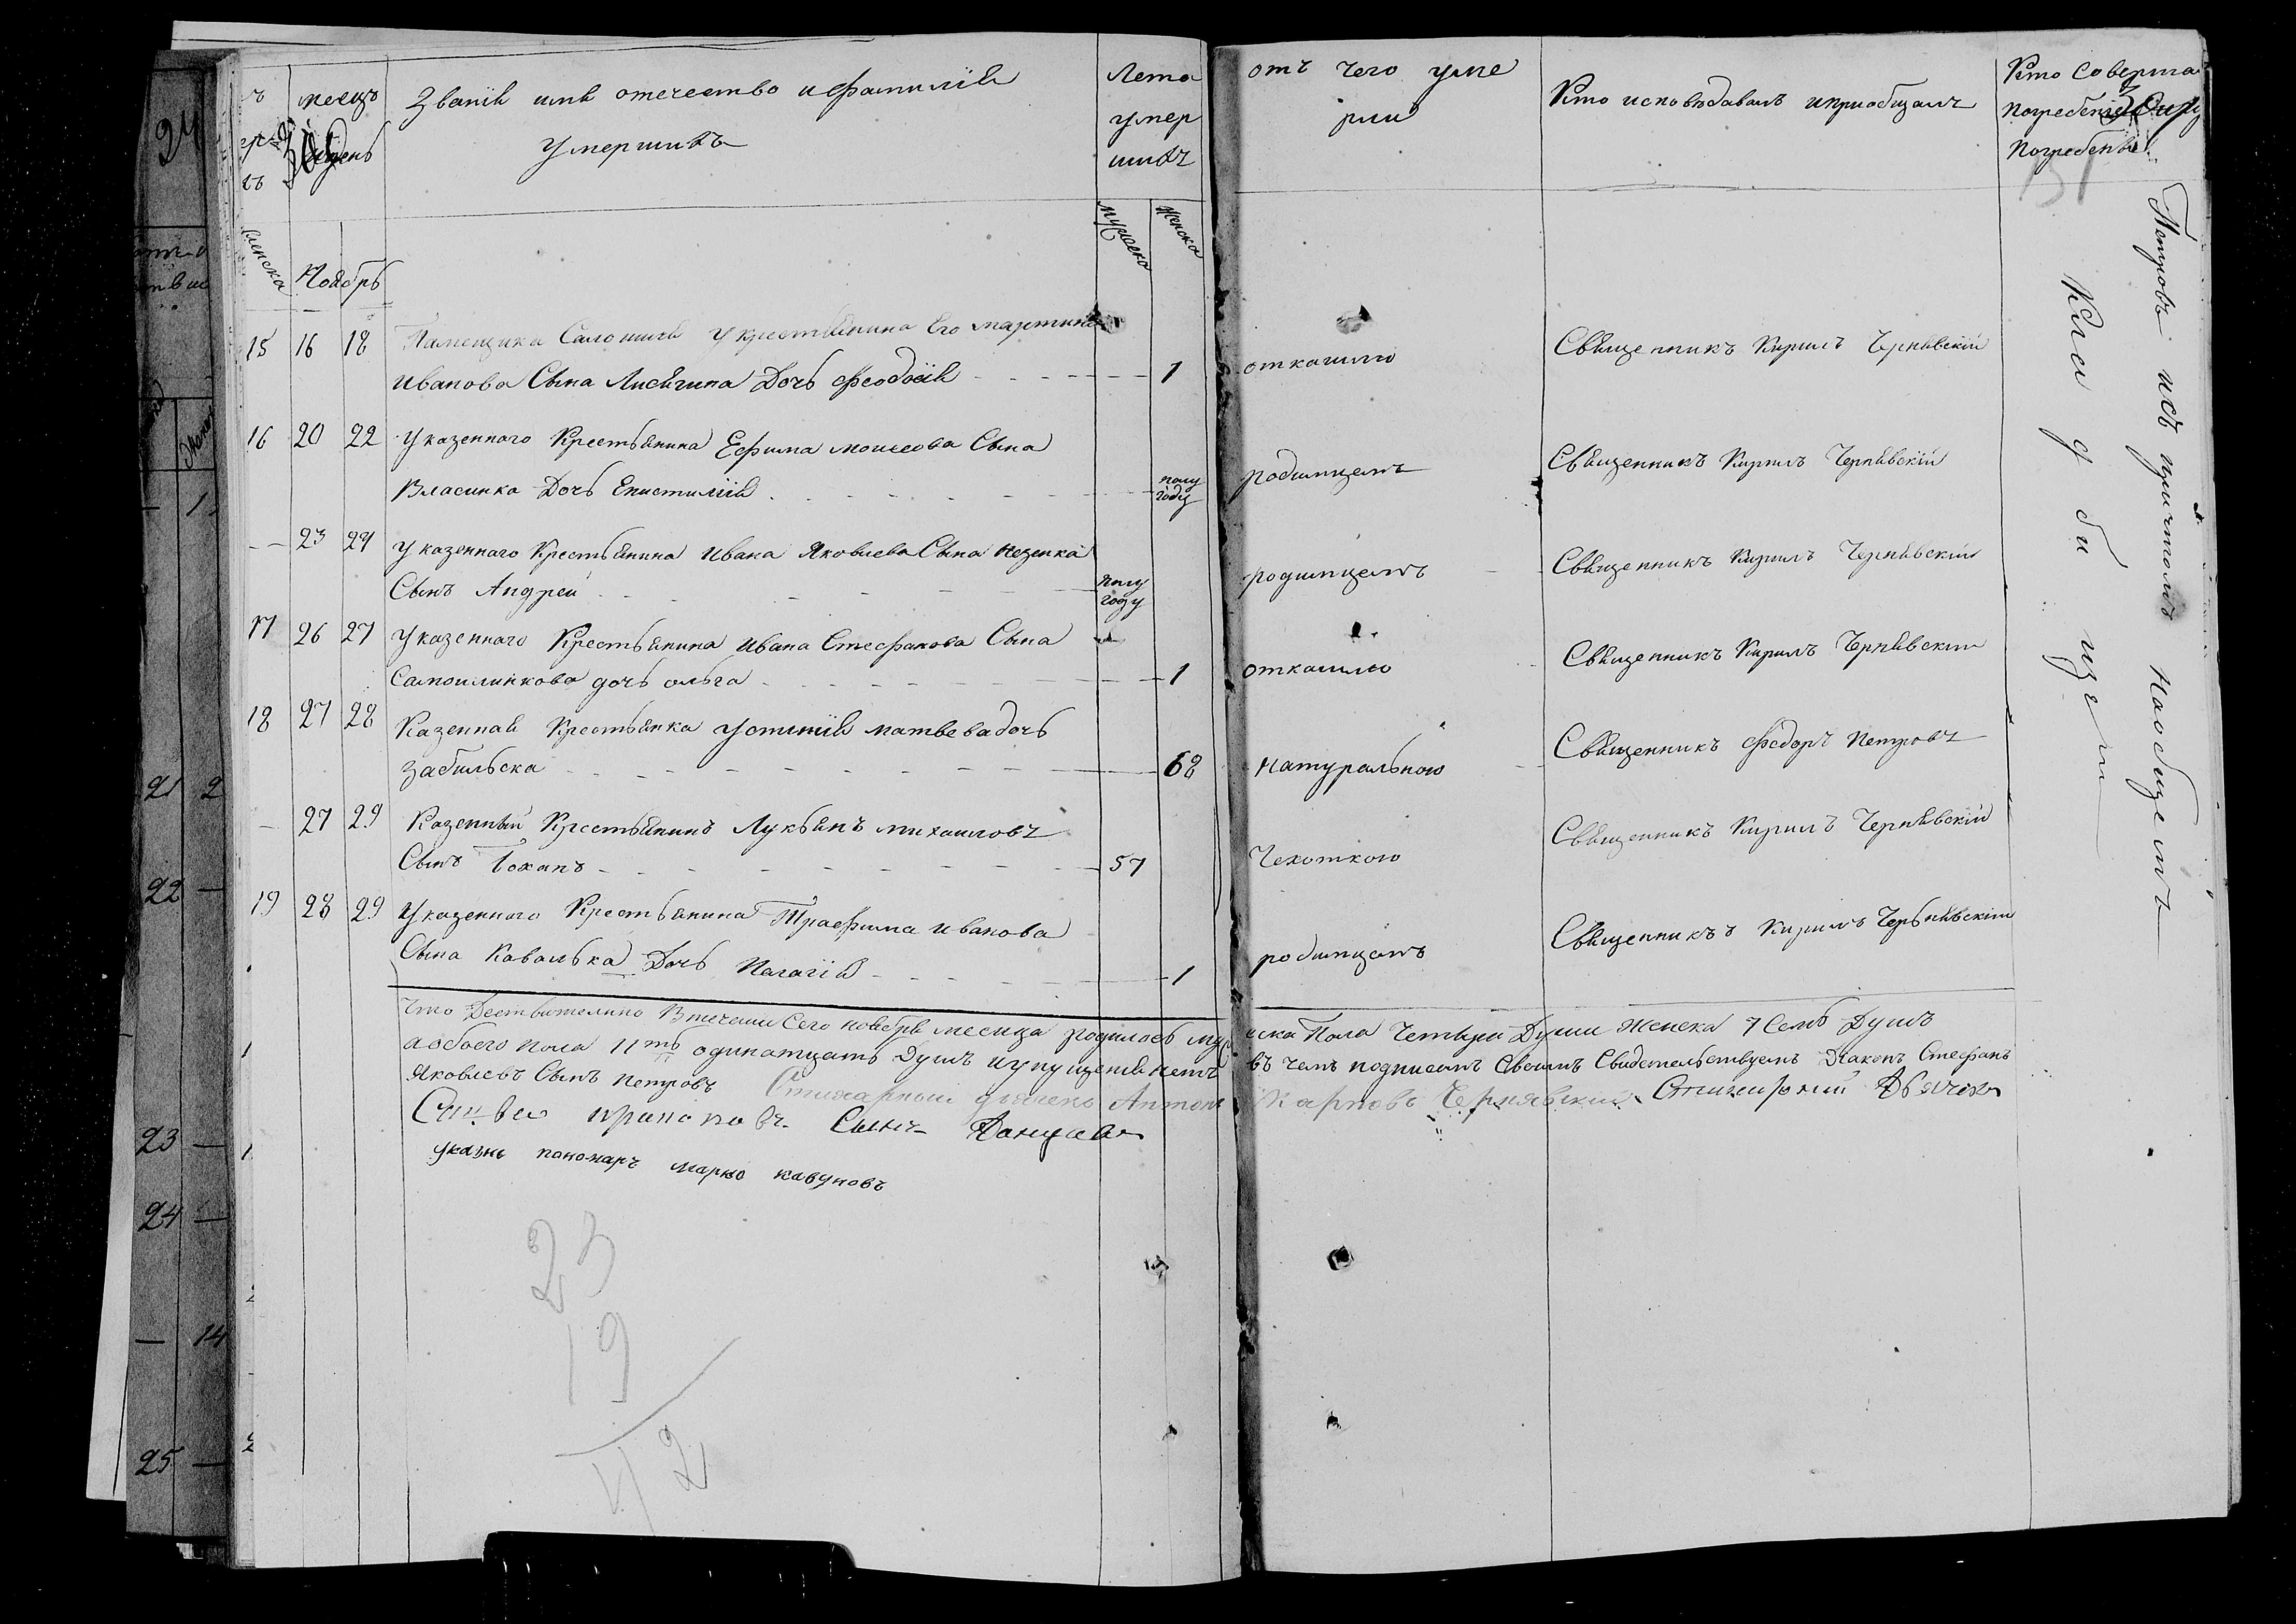 месецъ
и день
Званія имя отечество и фамилія
умершихъ
Лета
умер
шихъ
отъ чего уме
рли
Кто исповедавалъ и приобщалъ
Кто Соверша
погребеніе
Погребены
мужеска
женска
Ноябрь
15 16 18 Памещика Саломинъ у крестьянина Его мартина
иванова Сына Лисичина Дочь Феодосія 1 от кашлю Священникъ Кирилъ Чернявскій
16 20 22 У казенного Крестьянина Ефима моисеова Сына
Власинка Дочь Епистимія полу году родимцемъ Священникъ Кирилъ Чернявскій
— 23 24 У казенного Крестьянина Ивана Яковлева Сына Незенка
Сынъ Андрей полу году родимцемъ Священникъ Кирилъ Чернявскій
17 26 27 У казенного Крестьянина Ивана Стефанова Сына
Самоиленкова дочь ольга 1 от кашлю Священникъ Кирилъ Чернявскій
18 27 28 Казенная Крестьянка Устинія матвева дочь
Забильска 68 Натуральною Священникъ Федоръ Петровъ
— 27 29 Казенный Крестьянинъ Лукьянъ михаиловъ
Сынъ Бохинъ 57 Чехоткою Священникъ Кирилъ Чернявскій
19 28 29 У казенного Крестьянина Трафима иванова
Сына Кавалька Дочь Пагагія 1 родимцемъ Священникъ Кирилъ Черьнявскій
Петровъ исъ причтомъ на общемъ
Кла д би щем
Что Дествително В течении Сего ноября месеца родилось муженска Пола Четыри Души Женска 7 Семь Душъ
а обоего пола 11ть одинатцать Душъ и упущенія нетъ въ чемъ подписомъ Своимъ Свидетельствуемъ Діаконъ Стефанъ
Яковлевъ Сынъ Петровъ Стихарный дьячекъ Антонъ Карповъ Чернявский Стихирний Дьячок
Сынъ
указнъ пономаръ марко кавуновъ
23
19
42